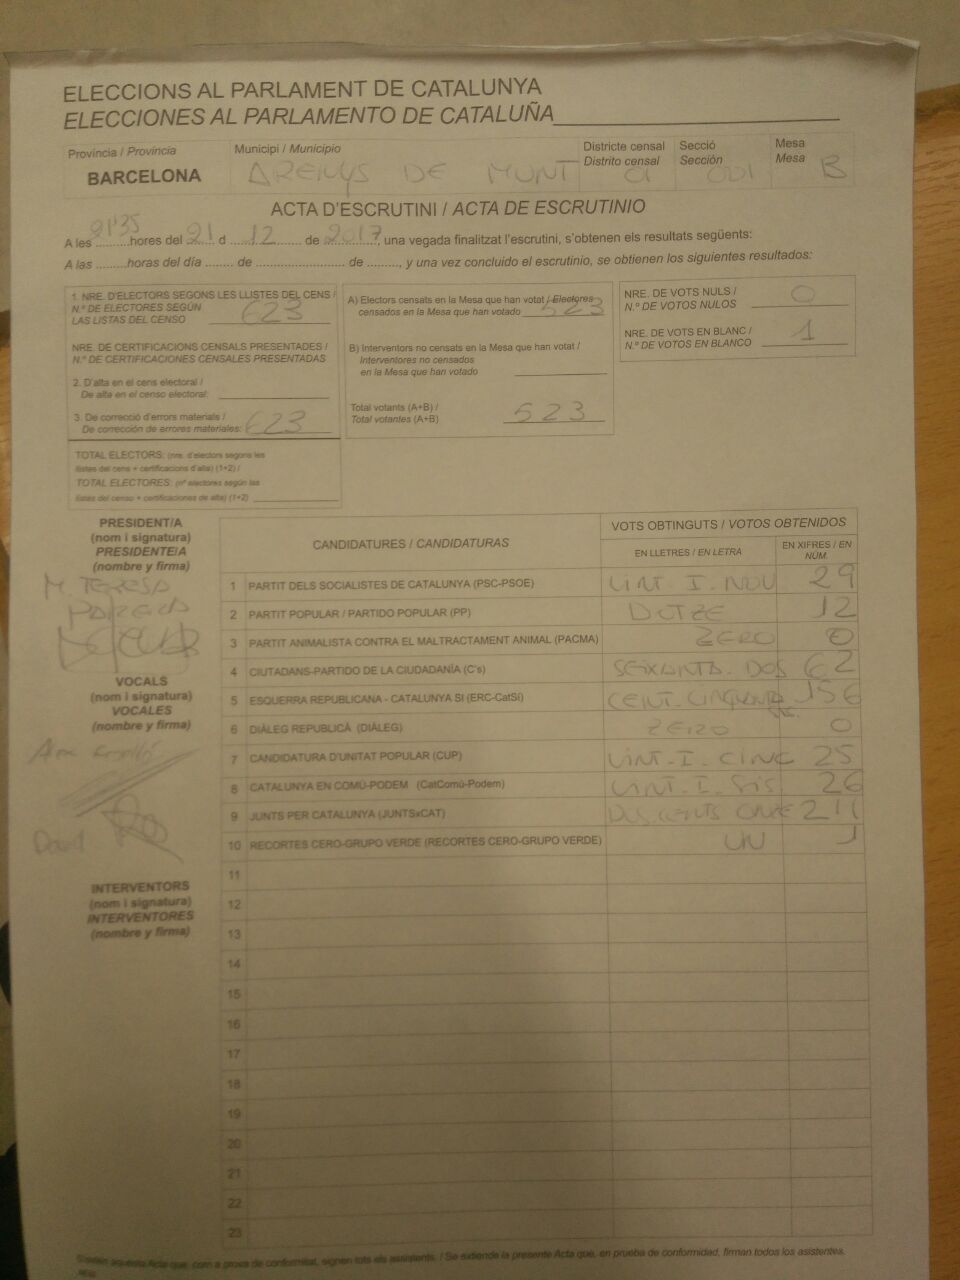 ELECCIONS AL PARLAMENT DE CATALUNYA
ELECCIONES AL PARLAMENTO DE CATALUÑA
Província / Provincia
BARCELONA
Municipi / Municipio
ARENYS DE MUNT
Districte censal
Distrito censal
01
Secció
Sección
001
Mesa
Mesa
B
ACTA D'ESCRUTINI / ACTA DE ESCRUTINIO
A les 21'35 hores del 21 d 12 de 2017, una vegada finalitzat l'escrutini, s'obtenen els resultats següents:
A las ......... horas del día ........ de ........................... de ........., y una vez concluido el escrutinio, se obtienen los siguientes resultados:
1. NRE. D'ELECTORS SEGONS LES LLISTES DEL CENS /
N.º DE ELECTORES SEGÚN
LAS LISTAS DEL CENSO 623
NRE. DE CERTIFICACIONS CENSALS PRESENTADES /
N.º DE CERTIFICACIONES CENSALES PRESENTADAS
2. D'alta en el cens electoral /
De alta en el censo electoral:
3. De correcció d'errors materials /
De corrección de errores materiales: 623
TOTAL ELECTORS: (nre. d'electors segons les
llistes del cens + certificacions d'alta) (1+2) /
TOTAL ELECTORES: (nº electores según las
listas del censo + certificaciones de alta) (1+2)
A) Electors censats en la Mesa que han votat / Electores
censados en la Mesa que han votado 523
B) Interventors no censats en la Mesa que han votat /
Interventores no censados
en la Mesa que han votado
Total votants (A+B) /
Total votantes (A+B) 523
NRE. DE VOTS NULS /
N.º DE VOTOS NULOS 0
NRE. DE VOTS EN BLANC /
N.º DE VOTOS EN BLANCO 1
PRESIDENT/A
(nom i signatura)
PRESIDENTE/A
(nombre y firma)
M. TERESA
VOCALS
(nom i signatura)
VOCALES
(nombre y firma)
David
INTERVENTORS
(nom i signatura)
INTERVENTORES
(nombre y firma)
CANDIDATURES / CANDIDATURAS
VOTS OBTINGUTS / VOTOS OBTENIDOS
EN LLETRES / EN LETRA
EN XIFRES / EN NÚM.
1 PARTIT DELS SOCIALISTES DE CATALUNYA (PSC-PSOE) VINT.I.NOU 29
2 PARTIT POPULAR / PARTIDO POPULAR (PP) DOTZE 12
3 PARTIT ANIMALISTA CONTRA EL MALTRACTAMENT ANIMAL (PACMA) ZERO 0
4 CIUTADANS-PARTIDO DE LA CIUDADANÍA (C's) SEIXANTA.DOS 62
5 ESQUERRA REPUBLICANA - CATALUNYA SÍ (ERC-CatSí) CENT.CINQUANTA 156
6 DIÀLEG REPUBLICÀ (DIÀLEG) ZERO 0
7 CANDIDATURA D'UNITAT POPULAR (CUP) VINT.I.CINC 25
8 CATALUNYA EN COMÚ-PODEM (CatComú-Podem) VINT.I.SIS 26
9 JUNTS PER CATALUNYA (JUNTSxCAT) DUSCENTS ONZE 211
10 RECORTES CERO-GRUPO VERDE (RECORTES CERO-GRUPO VERDE) UN 1
11
12
13
14
15
16
17
18
19
20
21
22
23
aquesta Acta que, com a prova de conformitat, signen tots els assistents. / Se extiende la presente Acta que, en prueba de conformidad, firman todos los asistentes.